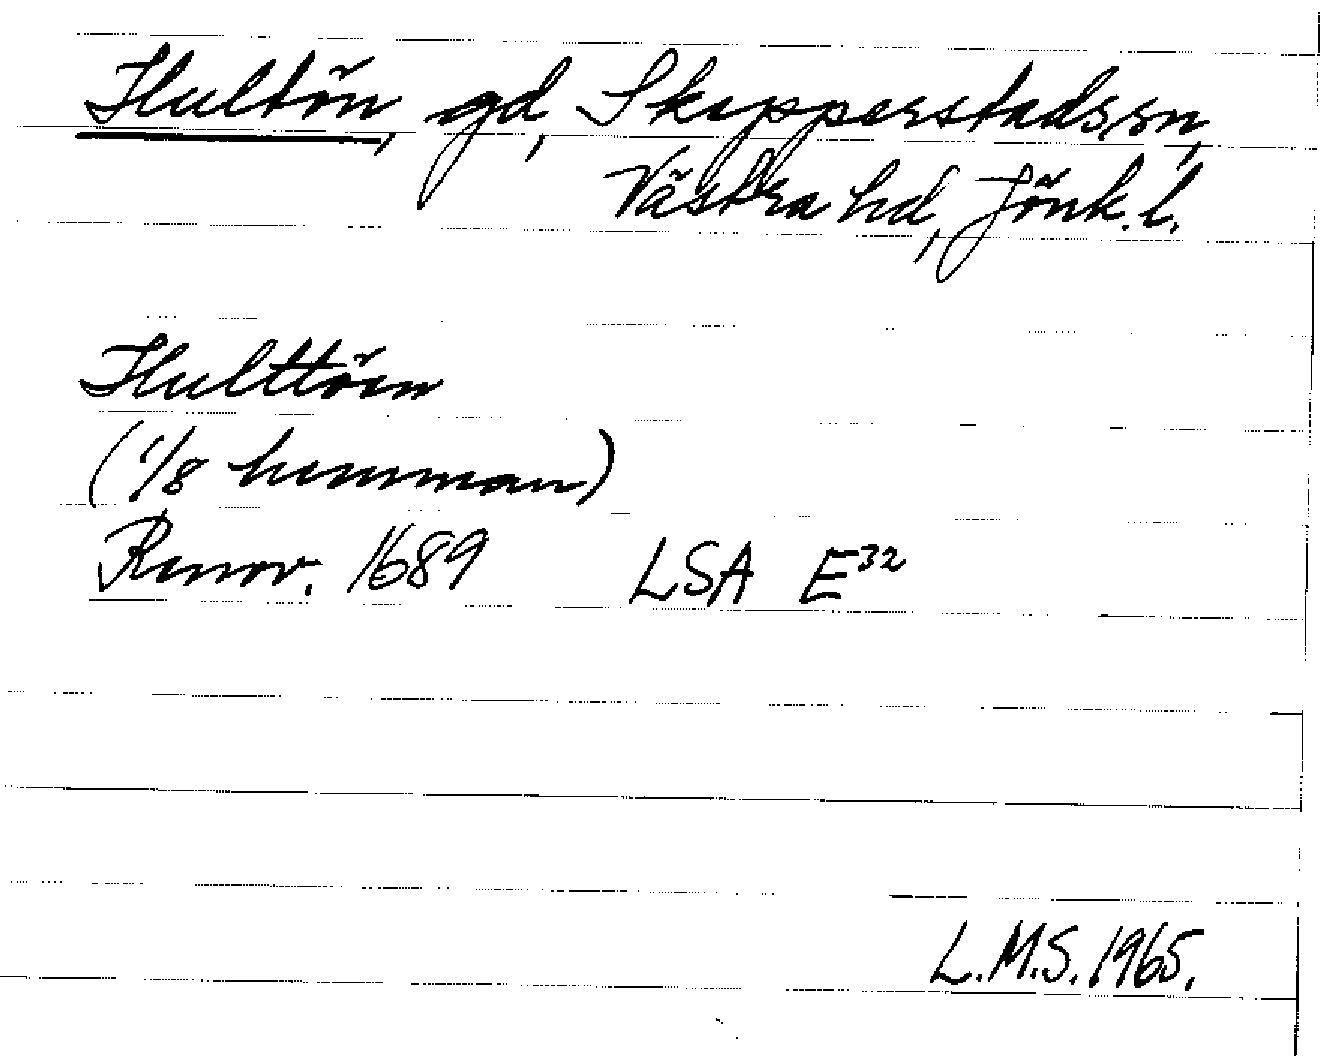 Hultön, gd, Skepperstads sn,
Västra hd, Jönk. l.
Hulttöen
(1/8 hemman)
Renov. 1689 LSA E32
L.M.S. 1965.